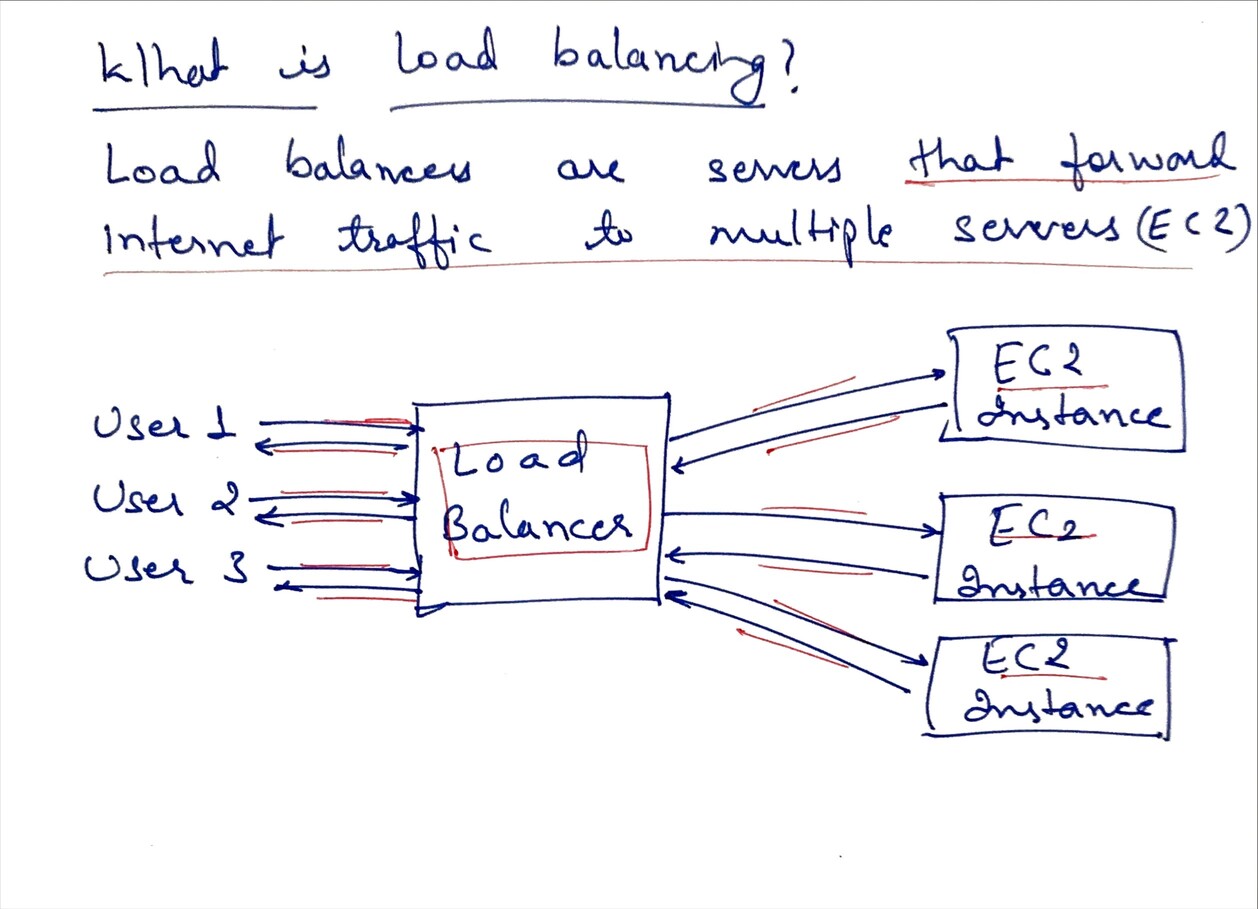 What is Load balancing?
Load balancers are servers that forward
Internet traffic to multiple servers (EC2)
User 1
User 2
User 3
Load
Balancer
EC2
Instance
EC2
Instance
EC2
Instance